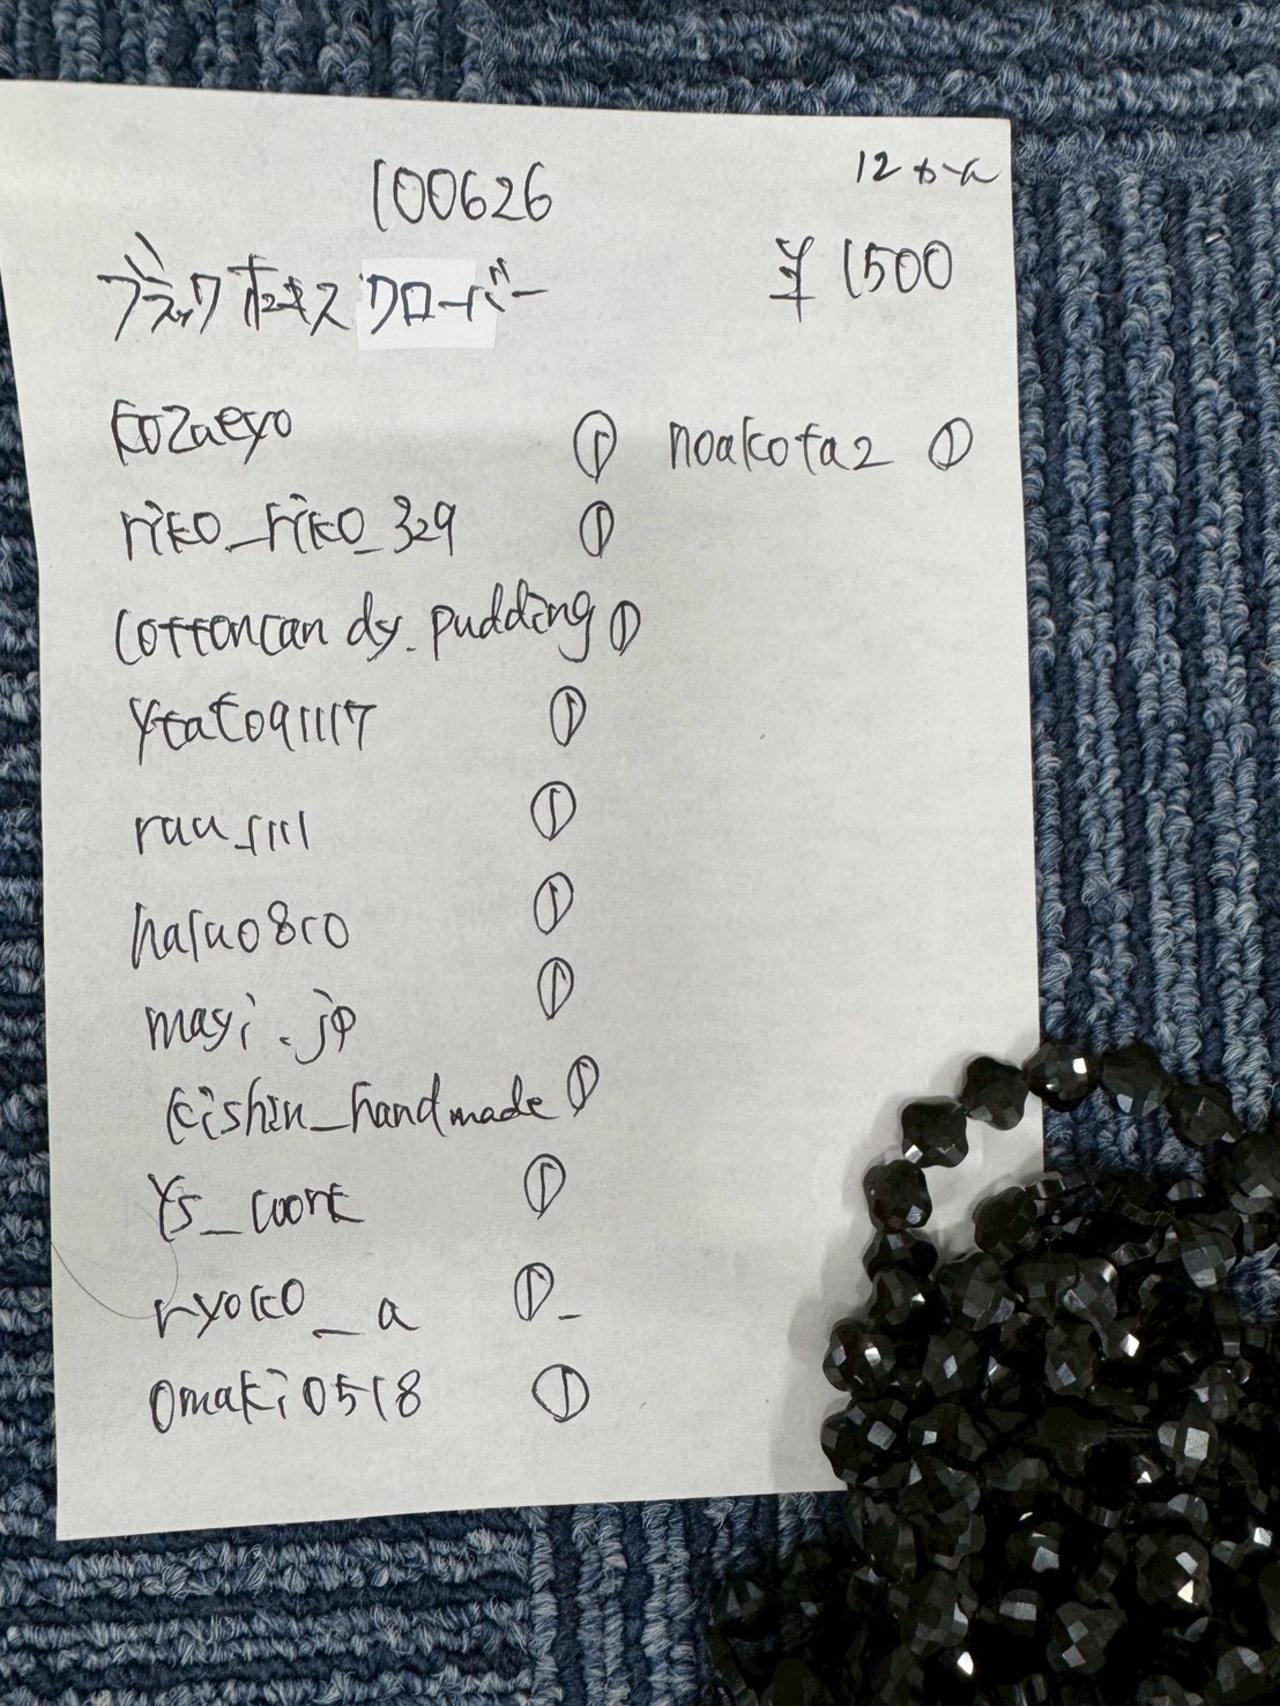 100626
12
¥1500
ブラックオニキスクローバー
kozaeyo ①
noakota2 ①
riko_riko_329 ①
cottoncandy.pudding ①
①
ruu_1111 ①
haruo810 ①
mayi.jp ①
kishin_handmade ①
ys_work ①
ryoko__a ①
omaki0518 ①